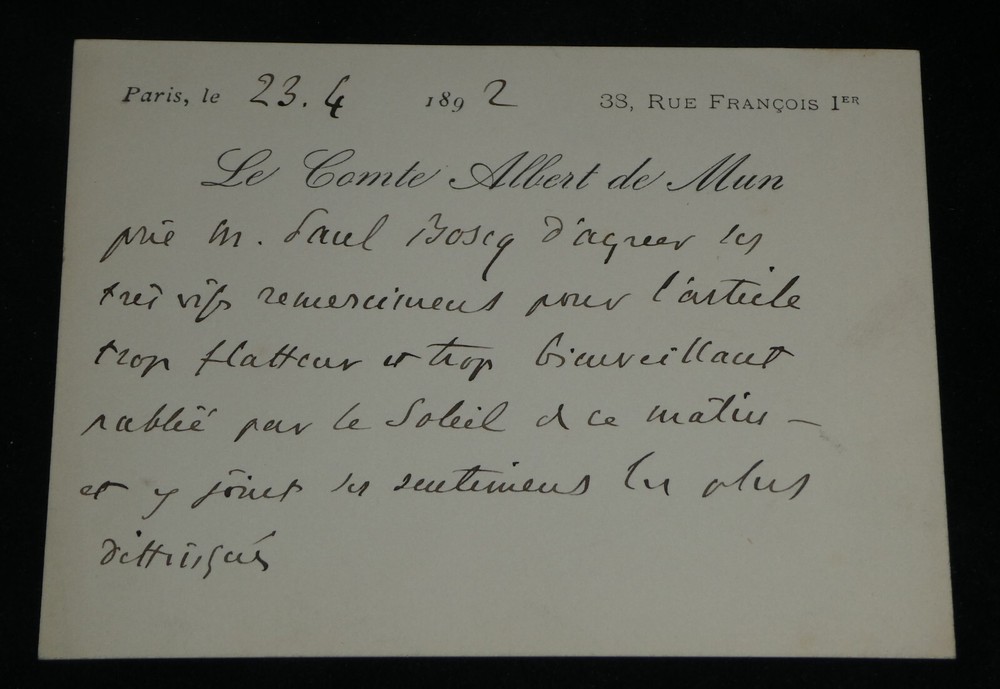 Paris, le 23.4 1892 38, RUE FRANÇOIS IER
Le Comte Albert de Mun
prie M. Paul Boscq d'agréer ses
très vifs remerciments pour l'article
trop flatteur et trop bienveillant
publié par le Soleil de ce matin —
et y joint ses sentimens les plus
distingués